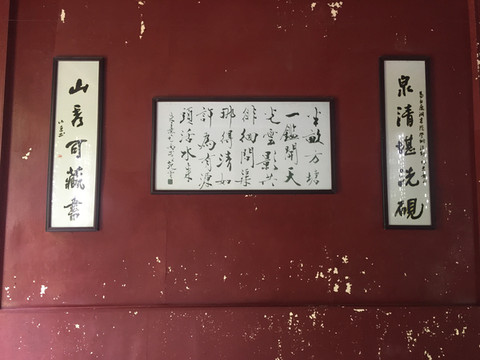 泉清堪洗硯
半畝方塘
一鑑開天
光雲影共
徘徊問渠
那得清如
許為有源
頭活水來
山秀可藏書